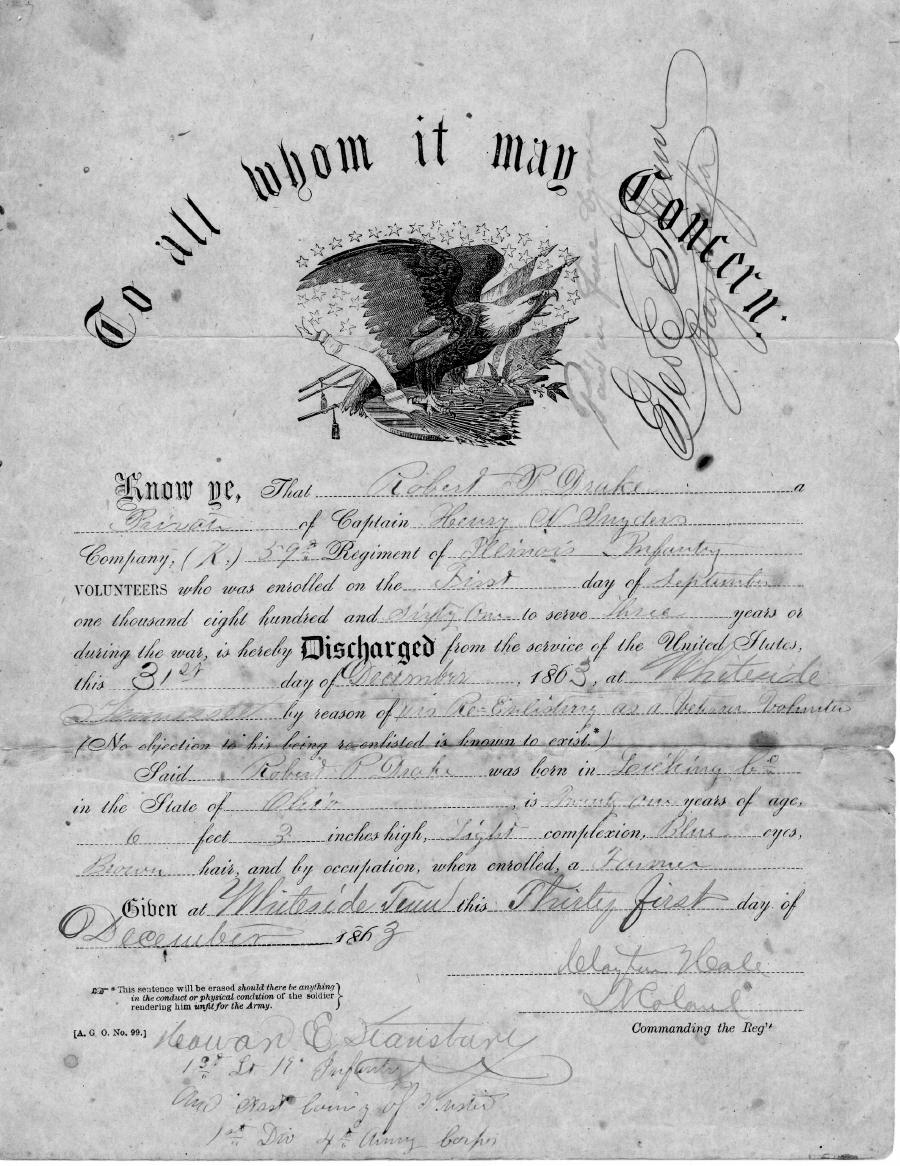 To all whom it may Concern:
Geo E Glenn
Know ye, That Robert P Drake a
Private of Captain Henry N Snyders
Company, (K.) 59th Regiment of Illinois Infantry
VOLUNTEERS who was enrolled on the First day of September
one thousand eight hundred and Sixty One to serve three years or
during the war, is hereby Discharged from the service of the United States,
this 31st day of December, 1863, at Whiteside
Tennessee by reason of his Re-Enlisting as a Veteran Volunteer
(No objection to his being re-enlisted is known to exist.*)
Said Robert P Drake was born in Licking Co
in the State of Ohio, is Twenty One years of age,
6 feet 3 inches high, Light complexion, Blue eyes,
Brown hair, and by occupation, when enrolled, a Farmer
Given at Whiteside Tenn this Thirty first day of
December 1863
Clayton Hale
Lt Colonel
Commanding the Reg't
☞ * This sentence will be erased should there be anything
in the conduct or physical condition of the soldier
rendering him unfit for the Army.
[A. G. O. No. 99.]
E Stansbury
1st Lt 19 Infantry
and Asst Comy of Muster
1st Div 4th Army Corps